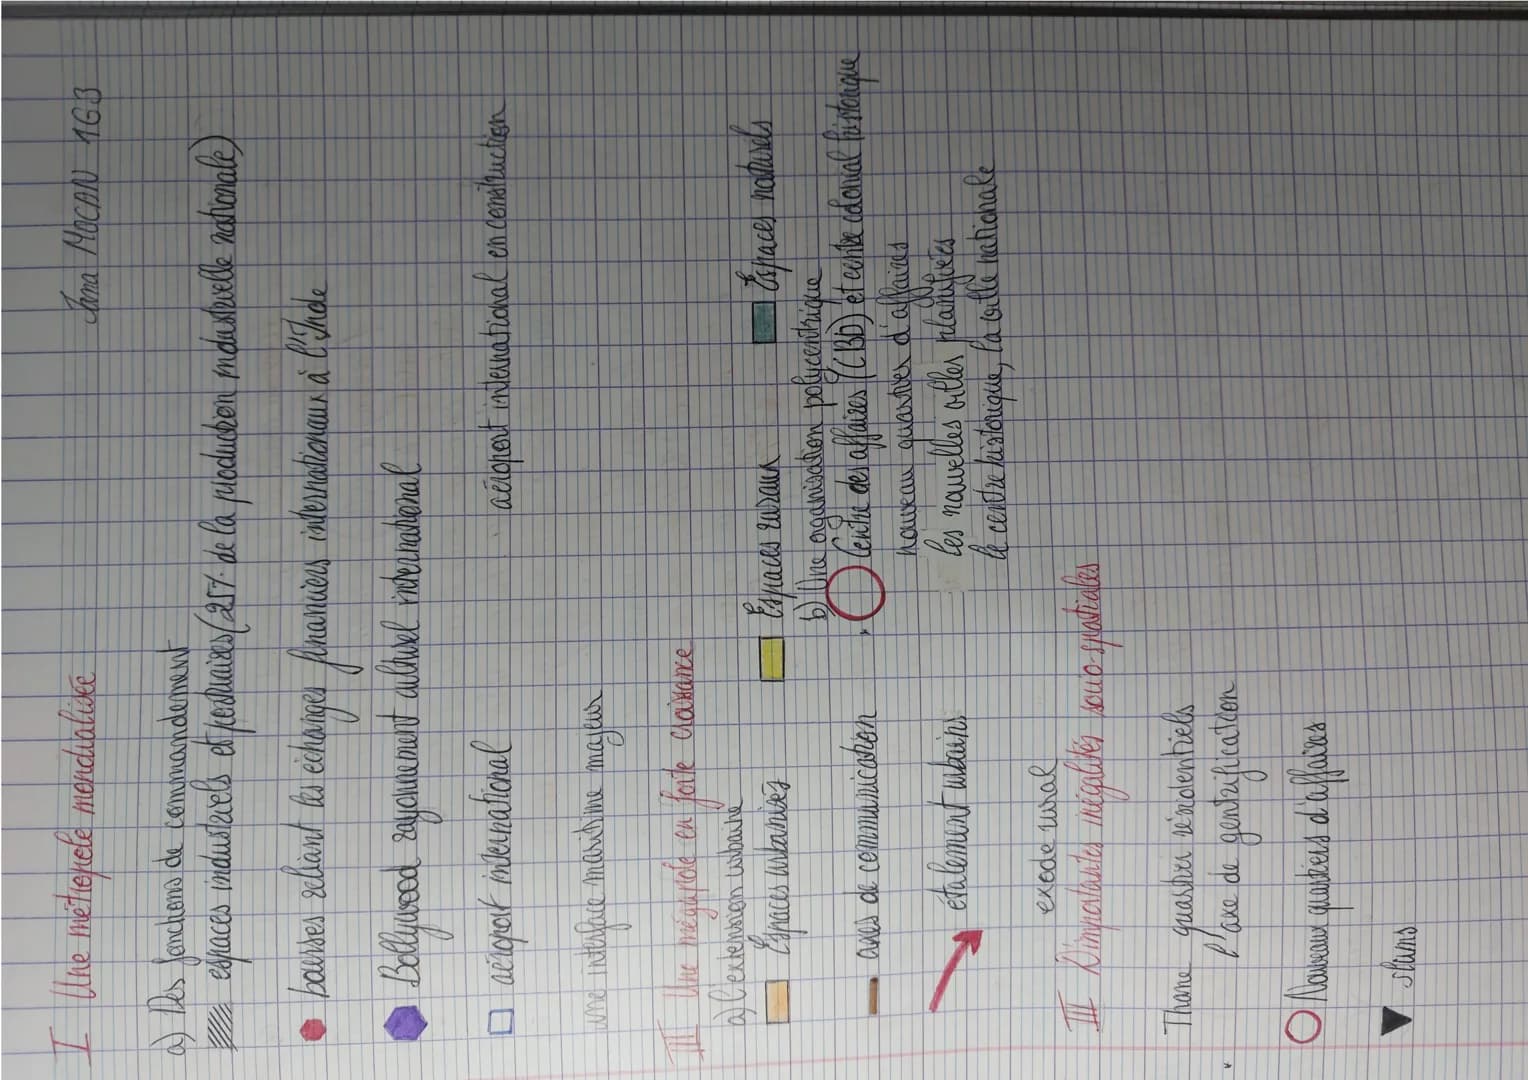 Jana MOCAN 1G3
I Une métropole mondialisée
a) Des fonctions de commandement
espaces industriels et portuaires (25% de la production industrielle nationale)
bourses reliant les échanges financiers internationaux à l'Inde
Bollywood rayonnement culturel international
aéroport international
aéroport international en construction
une interface maritime majeur
III Une mégapole en forte croissance
a) L'extension urbaine
Espaces urbanisés
Espaces ruraux
Espaces naturels
b) Une organisation polycentrique
axes de communication
Centre des affaires (CBD) et centre colonial historique
nouveau quartier d'affaires
étalement urbains
les nouvelles villes planifiées
le centre historique, la ville nationale
exode rural
III D'importantes inégalités socio-spatiales
Thane quartier résidentiels
l'axe de gentrification
Nouveaux quartiers d'affaires
slums